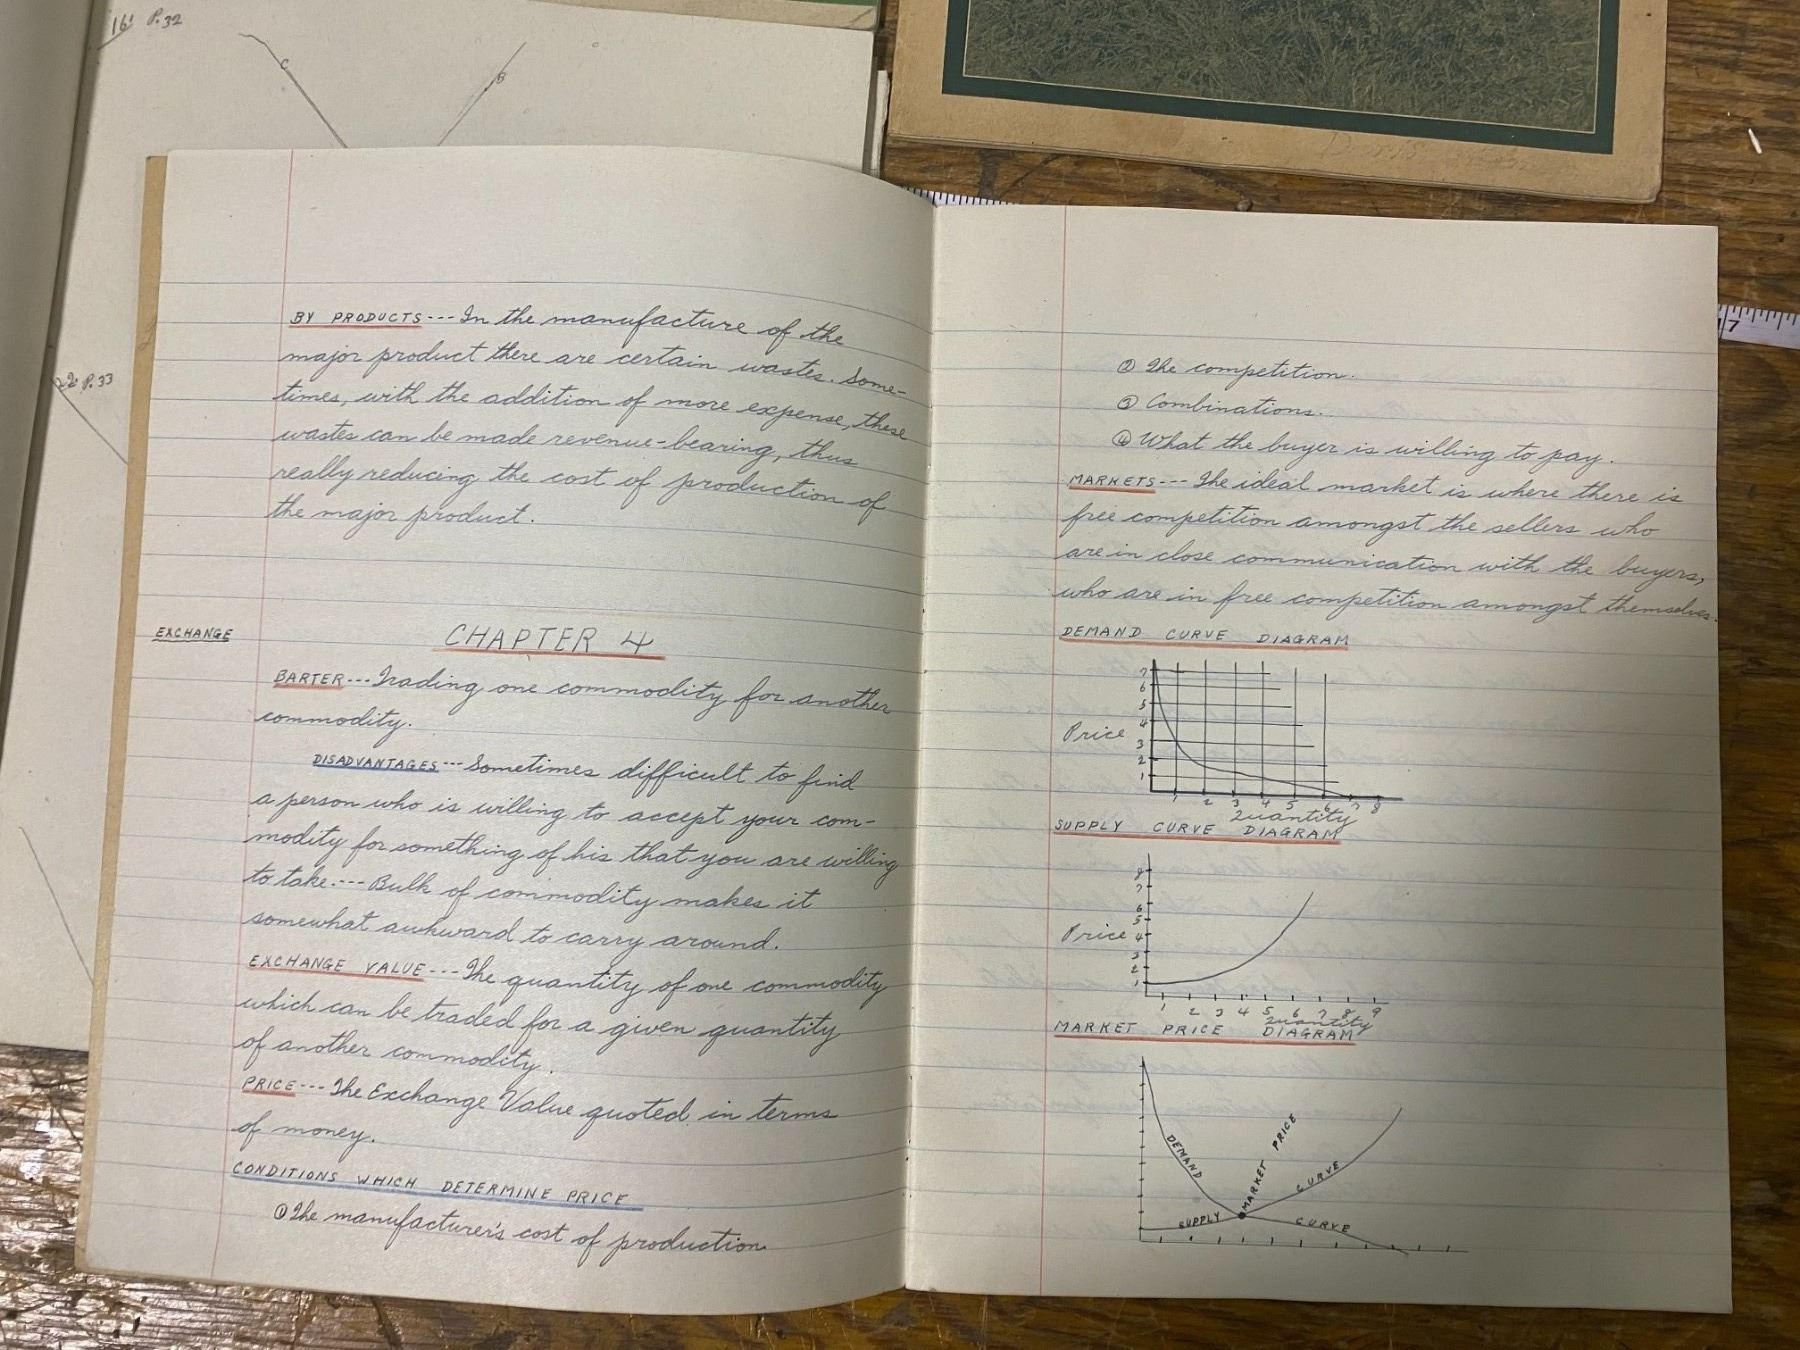 16' P.32
C
B
22 P.33
BY PRODUCTS---In the manufacture of the
major product there are certain wastes. Some-
times, with the addition of more expense, these
wastes can be made revenue-bearing, thus
really reducing the cost of production of
the major product.
EXCHANGE
CHAPTER 4
BARTER---Trading one commodity for another
commodity.
DISADVANTAGES---Sometimes difficult to find
a person who is willing to accept your com-
modity for something of his that you are willing
to take.---Bulk of commodity makes it
somewhat awkward to carry around.
EXCHANGE VALUE---The quantity of one commodity
which can be traded for a given quantity
of another commodity.
PRICE---The Exchange Value quoted in terms
of money.
CONDITIONS WHICH DETERMINE PRICE
① The manufacturer's cost of production
② The competition.
③ Combinations.
④ What the buyer is willing to pay.
MARKETS---The ideal market is where there is
free competition amongst the sellers who
are in close communication with the buyers,
who are in free competition amongst themselves.
DEMAND CURVE DIAGRAM
7
6
5
4
Price
3
2
1
1 2 3 4 5 6 7 8
Quantity
SUPPLY CURVE DIAGRAM
8
7
6
5
Price 4
3
2
1
1 2 3 4 5 6 7 8 9
Quantity
MARKET PRICE DIAGRAM
DEMAND
MARKET PRICE
CURVE
SUPPLY
CURVE
17